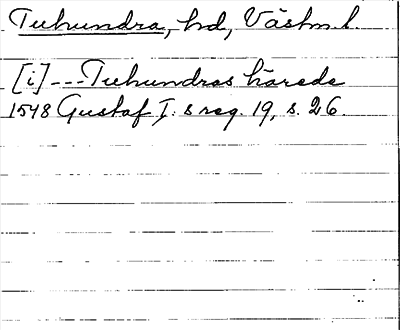 Tuhundra, hd, Västm.l.
[i] --- Tuhundras härede
1548 Gustaf I:s reg. 19, s. 26.